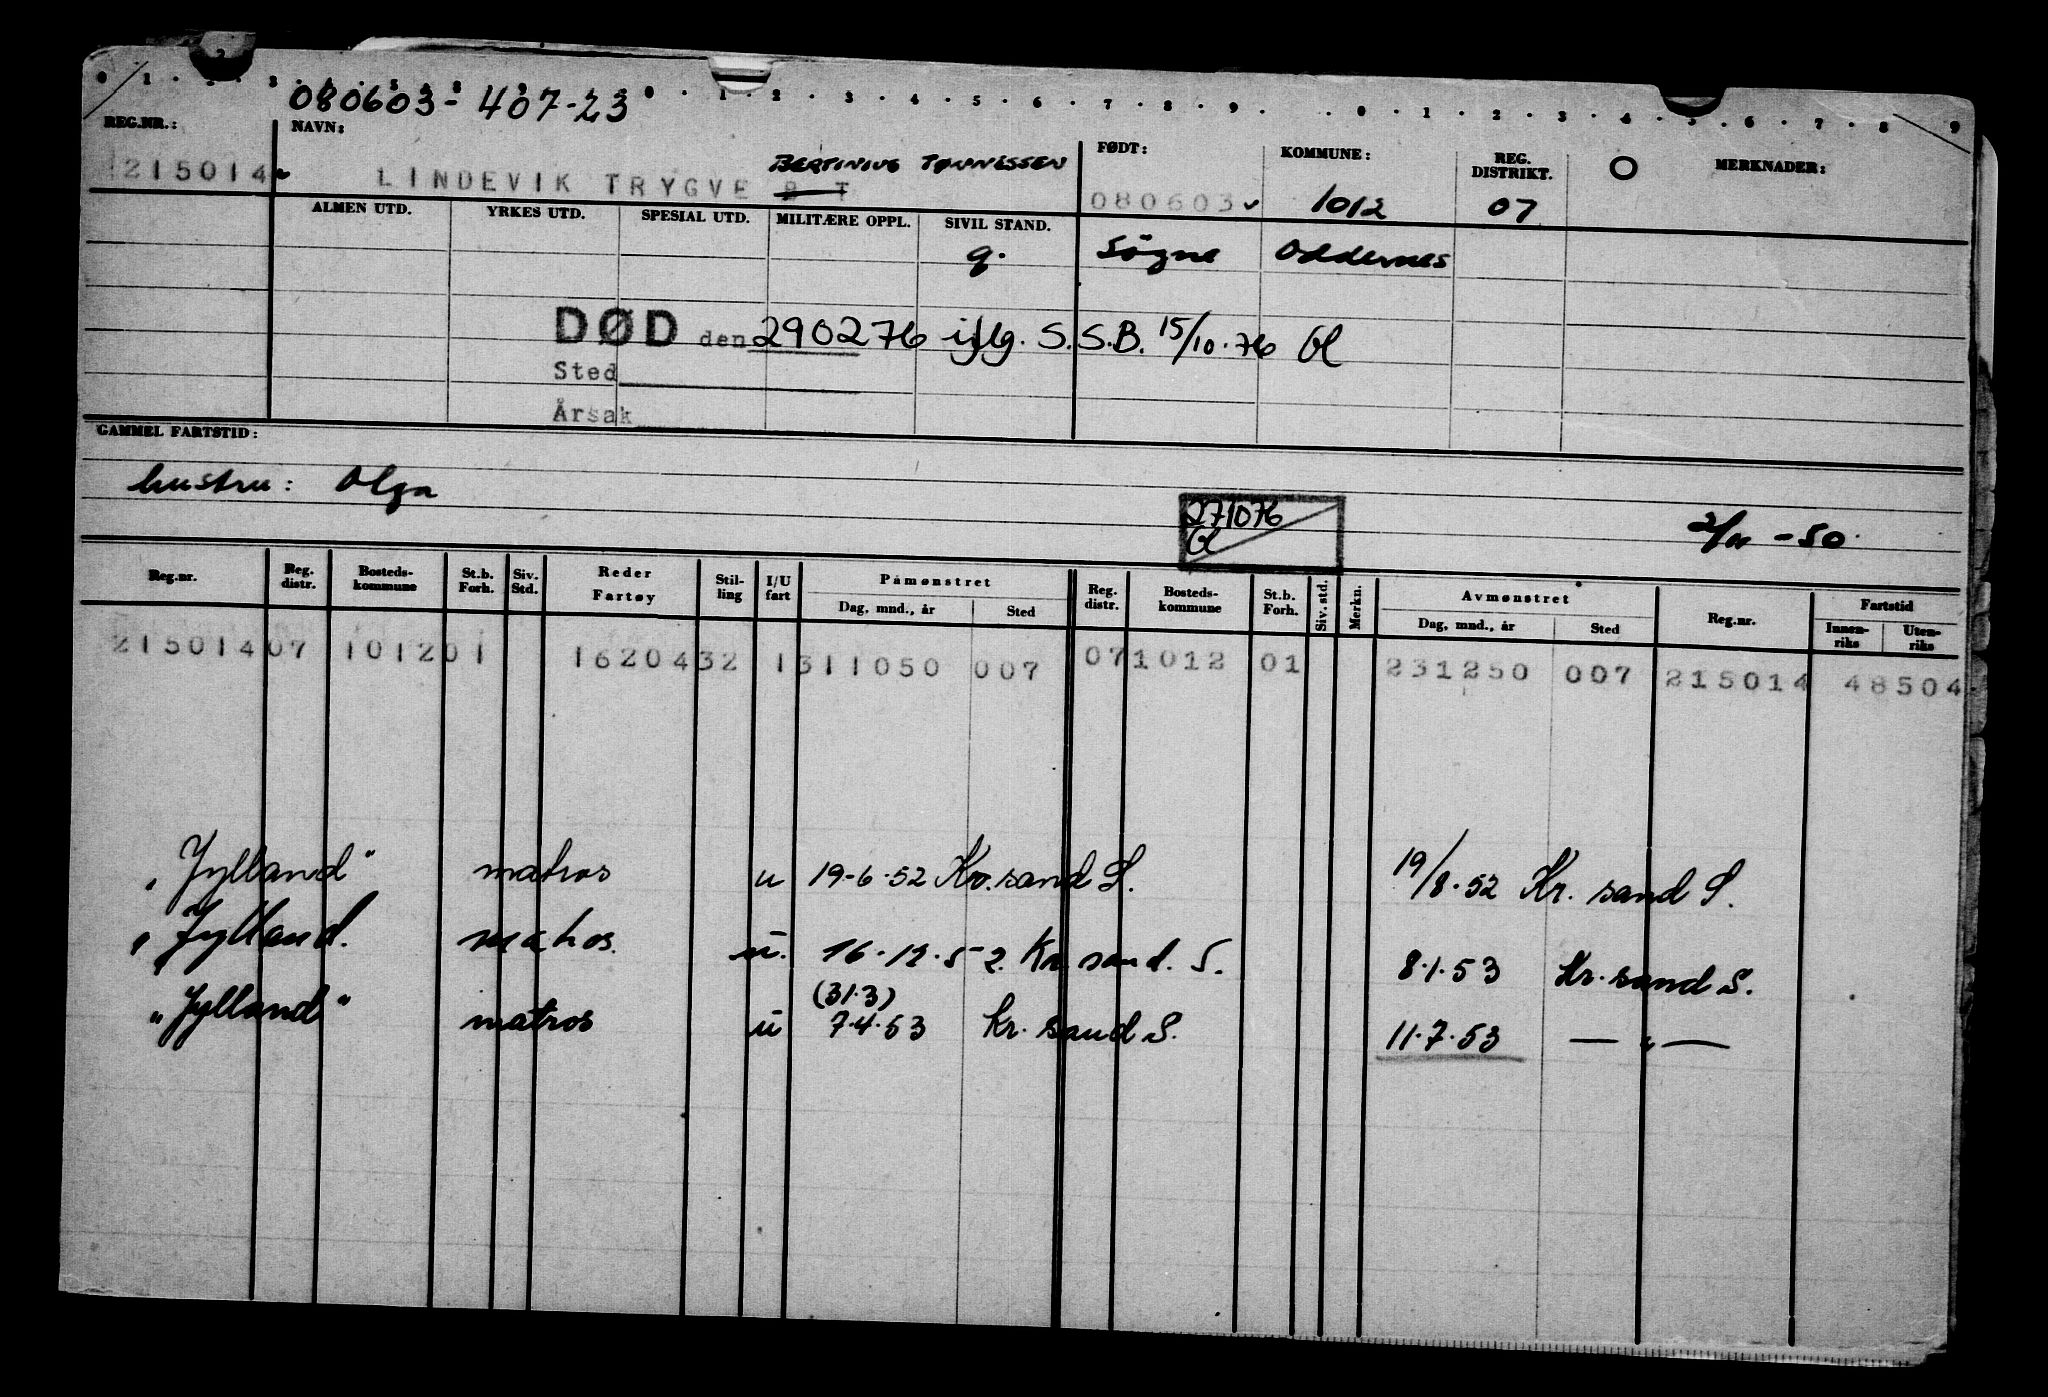 0 1 2 3 4 5 6 7 8 9 0 1 2 3 4 5 6 7 8 9
080603-407-23
REG.NR.: NAVN: FØDT: KOMMUNE: REG. DISTRIKT. O MERKNADER:
BERTINIUS TØNNESSEN
215014 LINDEVIK TRYGVE B T 080603 1012 07
ALMEN UTD. YRKES UTD. SPESIAL UTD. MILITÆRE OPPL. SIVIL STAND.
g. Søgne Oddernes
DØD den 290276 iflg. S.S.B. 15/10.76 Gl
Sted
Årsak
GAMMEL FARTSTID:
hustru: Olga
271076
Gl
-50
Reg.nr. Reg. distr. Bostedskommune St.b. Forh. Siv. Std. Reder Fartøy Stilling I/U fart Påmønstret Dag, mnd., år Sted Reg. distr. Bostedskommune St.b. Forh. Siv. std. Merkn. Avmønstret Dag, mnd., år Sted Reg.nr. Fartstid Innenriks Utenriks
215014 07 1012 01 1620432 1311050 007 07 1012 01 231250 007 215014 48504
"Jylland" matros u 19-6-52 Kr.sand S. 19/8.52 Kr. sand S.
"Jylland. matros. u. 16.12.52. Kr. sand. S. 8.1.53 Kr. sand S.
(31.3)
"Jylland" matros u 7.4.53 Kr. sand S. 11.7.53 — " —